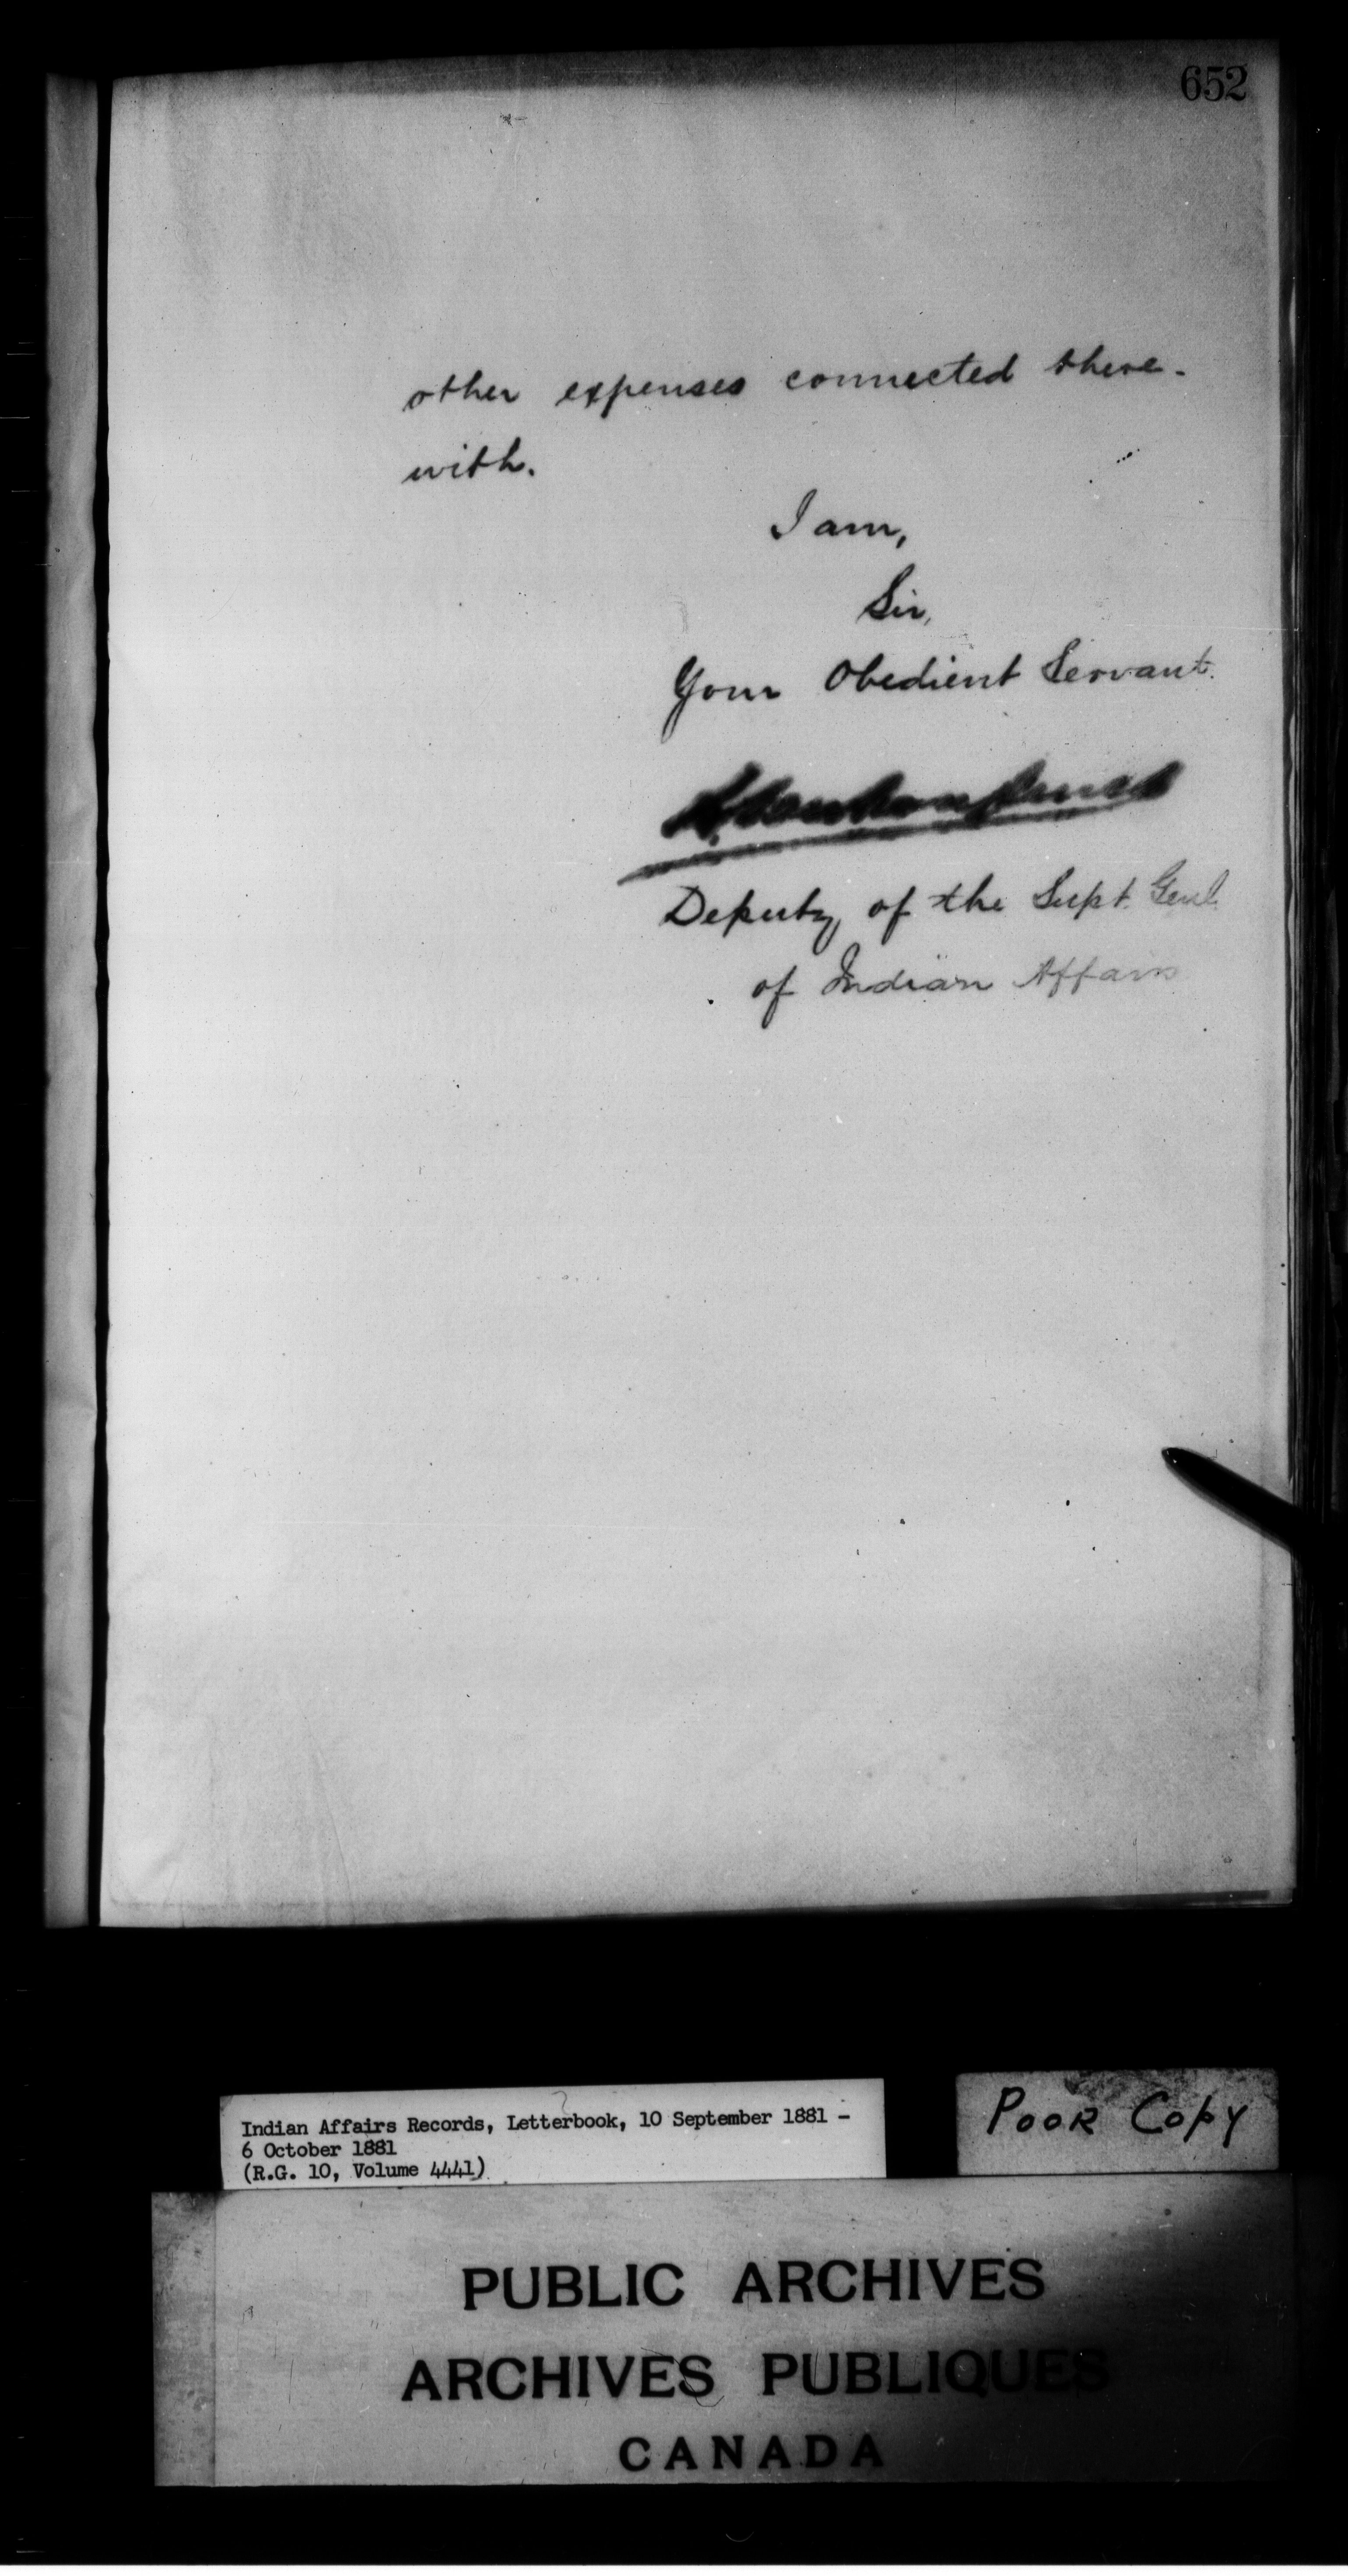 652
other expenses connected there-
with.
I am,
Sir,
Your Obedient Servant.
Deputy of the Supt. Genl.
of Indian Affairs
Indian Affairs Records, Letterbook, 10 September 1881 -
6 October 1881
(R.G. 10, Volume 4441)
POOR COPY
PUBLIC ARCHIVES
ARCHIVES PUBLIQUES
CANADA